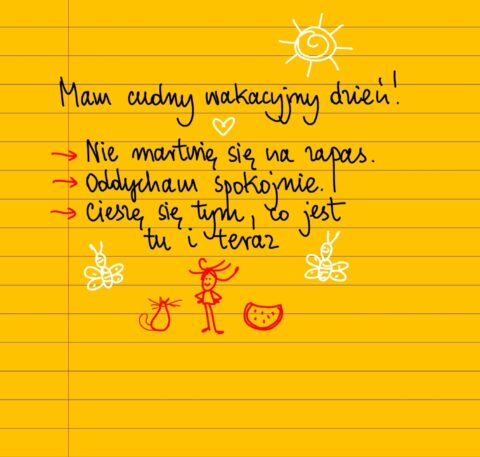 Mam cudny wakacyjny dzień!
→ Nie martwię się na zapas.
→ Oddycham spokojnie.
→ Cieszę się tym, co jest
tu i teraz